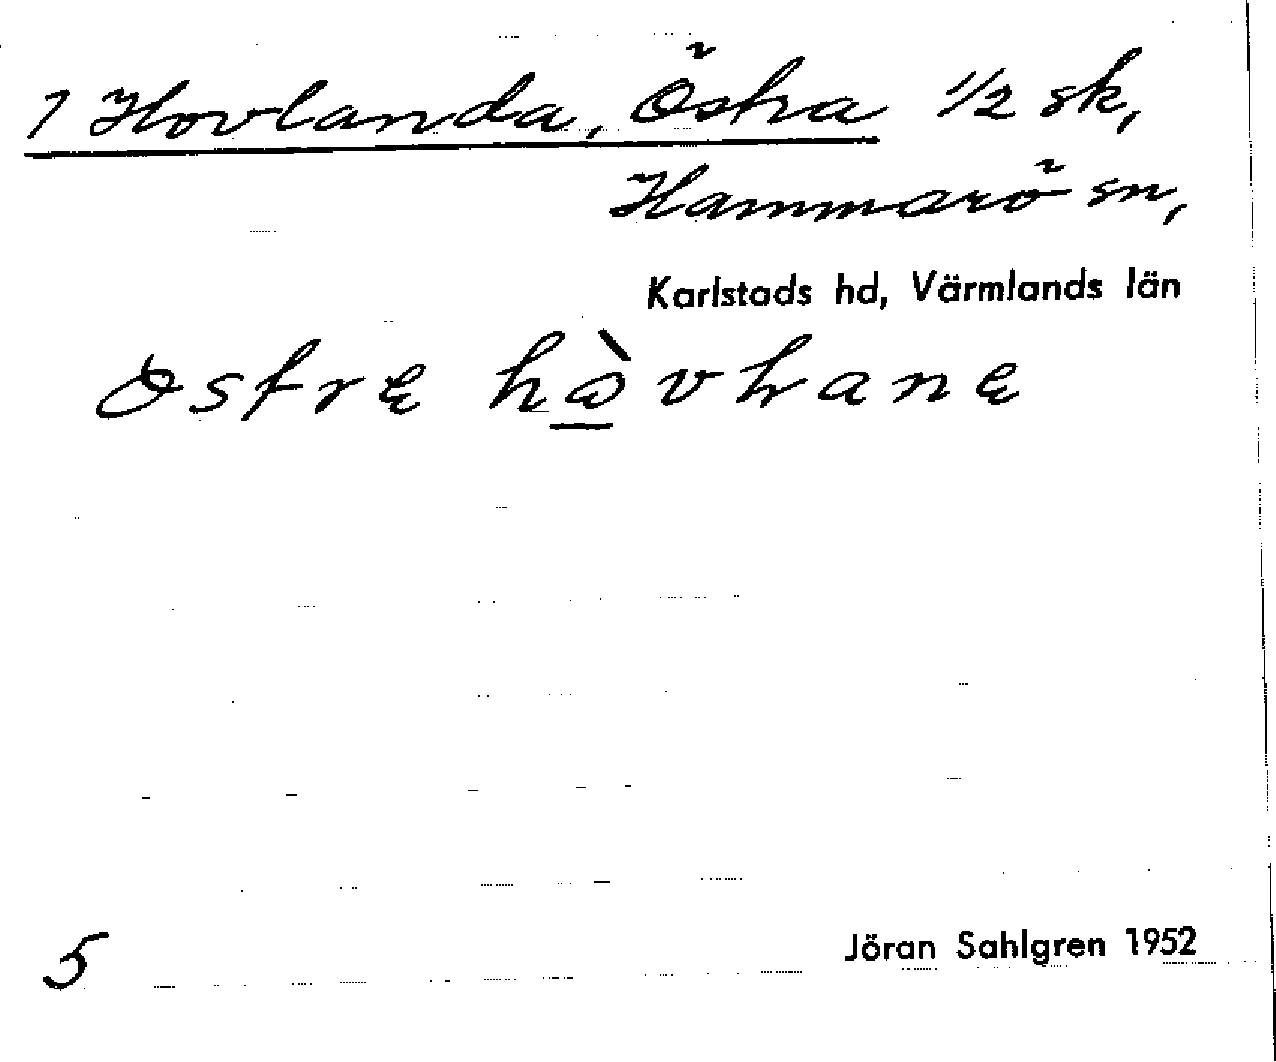 1 Hovlanda, Östra 1/2 sk,
Hammarö sn,
Karlstads hd, Värmlands län
5
Jöran Sahlgren 1952